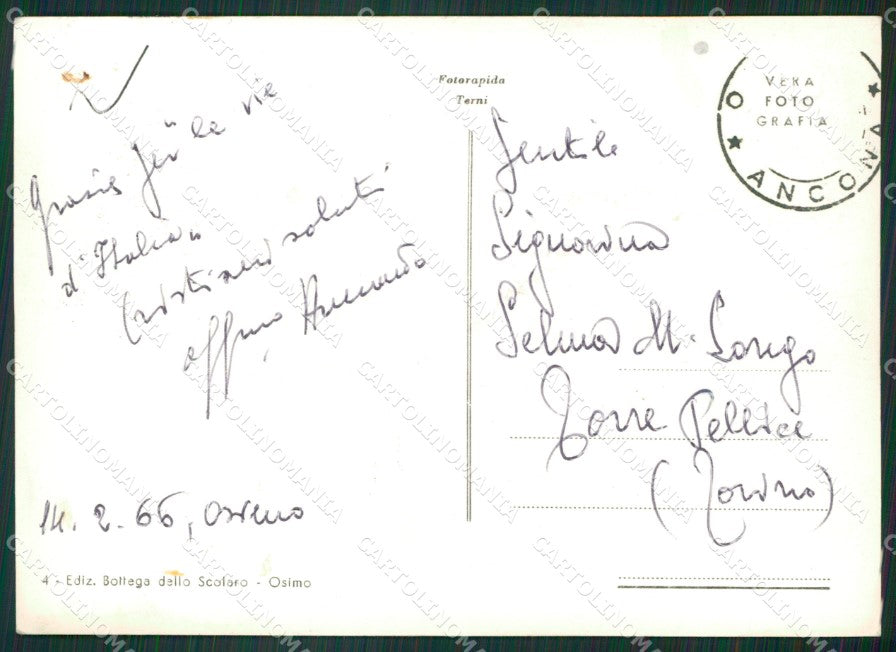 Fotorapida
Terni
VERA
FOTO
GRAFIA
ANCONA
Grazie per le vie
d'Italia
Cristiani saluti
affmo Armando
14. 2. 66, Osimo
4 - Ediz. Bottega dello Scolaro - Osimo
Gentile
Signorina
Selma M. Longo
Torre Pellice
(Torino)
CARTOLINOMANIA